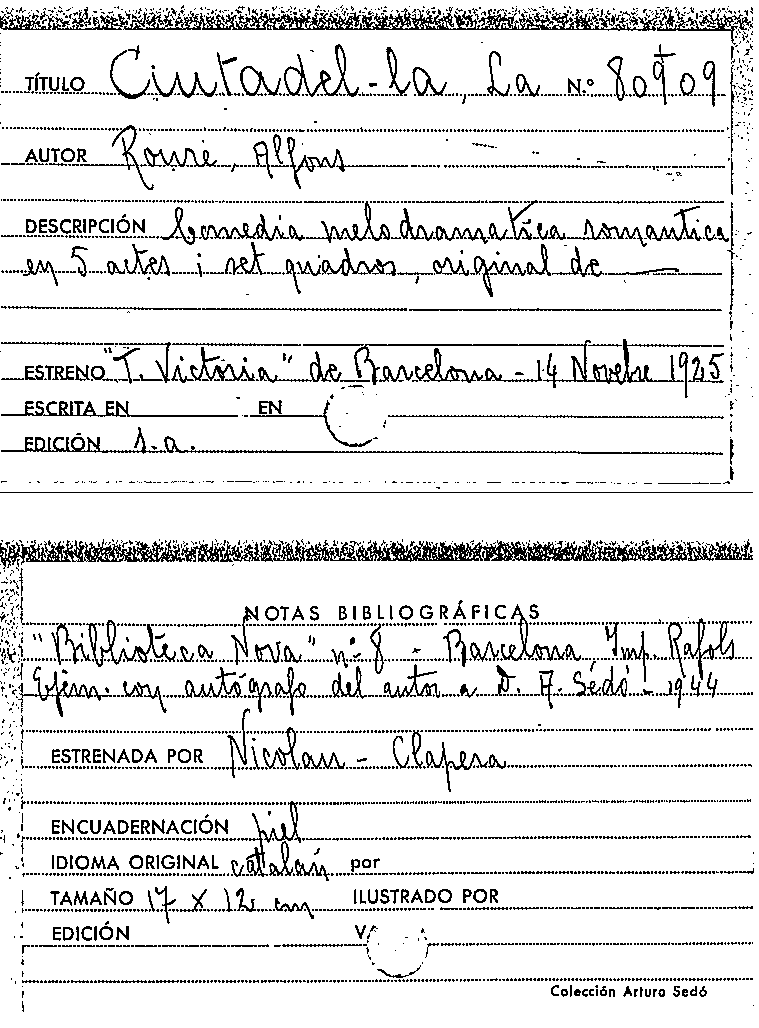 TÍTULO Ciutadel-la, La N.º 80909
AUTOR Roure, Alfons
DESCRIPCIÓN Comedia melodramatica romantica
en 5 actes i set quadros, original de —
ESTRENO "T. Victoria" de Barcelona - 14 Novbre 1925
ESCRITA EN EN
EDICIÓN s.a.
NOTAS BIBLIOGRÁFICAS
"Biblioteca Nova" nº 8 - Barcelona, Imp. Rafols
Ejem. con autógrafo del autor a D. A. Sedó - 1944
ESTRENADA POR Nicolau - Clapera
ENCUADERNACIÓN piel
IDIOMA ORIGINAL catalán por
TAMAÑO 17 x 12 cm ILUSTRADO POR
EDICIÓN
Colección Arturo Sedó